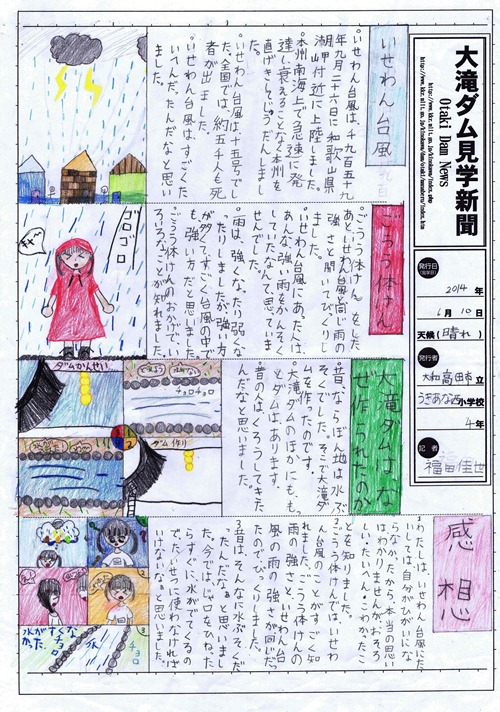 大滝ダム見学新聞
Otaki Dam News
発行日
2014年
6月10日
天候(晴れ)
発行者
大和高田市立
うきあな西小学校
4年
記者
いせわん台風
いせわん台風は、千九百五十九
年九月二十六日に和歌山県
潮岬付近に上陸しました。
本州南海上で急速に発
達し衰えることなく本州を
いせわん台風は十五号でし
た。全国では、約五千人も死
者が出ました。
いせわん台風は、すごくた
いへんだったんだなと思い
ました。
ごうう体けん
ごうう体けんをした
あと、いせわん台風と同じ雨の
強さと聞いてびっくりし
ました。
いせわん台風にあった人は、
あんな強い雨をかんそく
していたなんてと思っていま
せんでした。
雨は、強くなったり弱くな
ったりしましたが強い方
が多くてすごく台風の中で
も強い方だと思いました。
ごうう体けんのおかげで、い
ろいろなことが知れました。
ゴロゴロ
大滝ダムはな
ぜ作られたのか
昔、ならぼん地は水ぶ
そくでした。そこで大滝ダ
ムを作ったのです。
大滝ダムのほかにも、もっ
とダムはあります。
昔の人は、くろうしてきた
んだなと思いました。
ダムかんせい
チョロチョロ
ダム作り
感想
わたしは、いせわん台風にたい
しては、自分がひがいにな
らなかったから、本当の思い
はわかりませんが、おそろ
しい・たいへん・こわかったこ
とを知りました。
ごうう体けんでは、いせわ
ん台風のことがすごく知
れました。ごうう体けんの
雨の強さと、いせわん台
風の雨の強さが同じだっ
たのでびっくりしました。
昔は、そんなに水ぶそくだ
ったんだなぁと思いまし
た。今では、じゃ口をひねった
らすぐに、水がでてくるの
で、たいせつに使わなければ
いけないなぁと思いました。
水がすくな
かった。
チョロ
チョロ